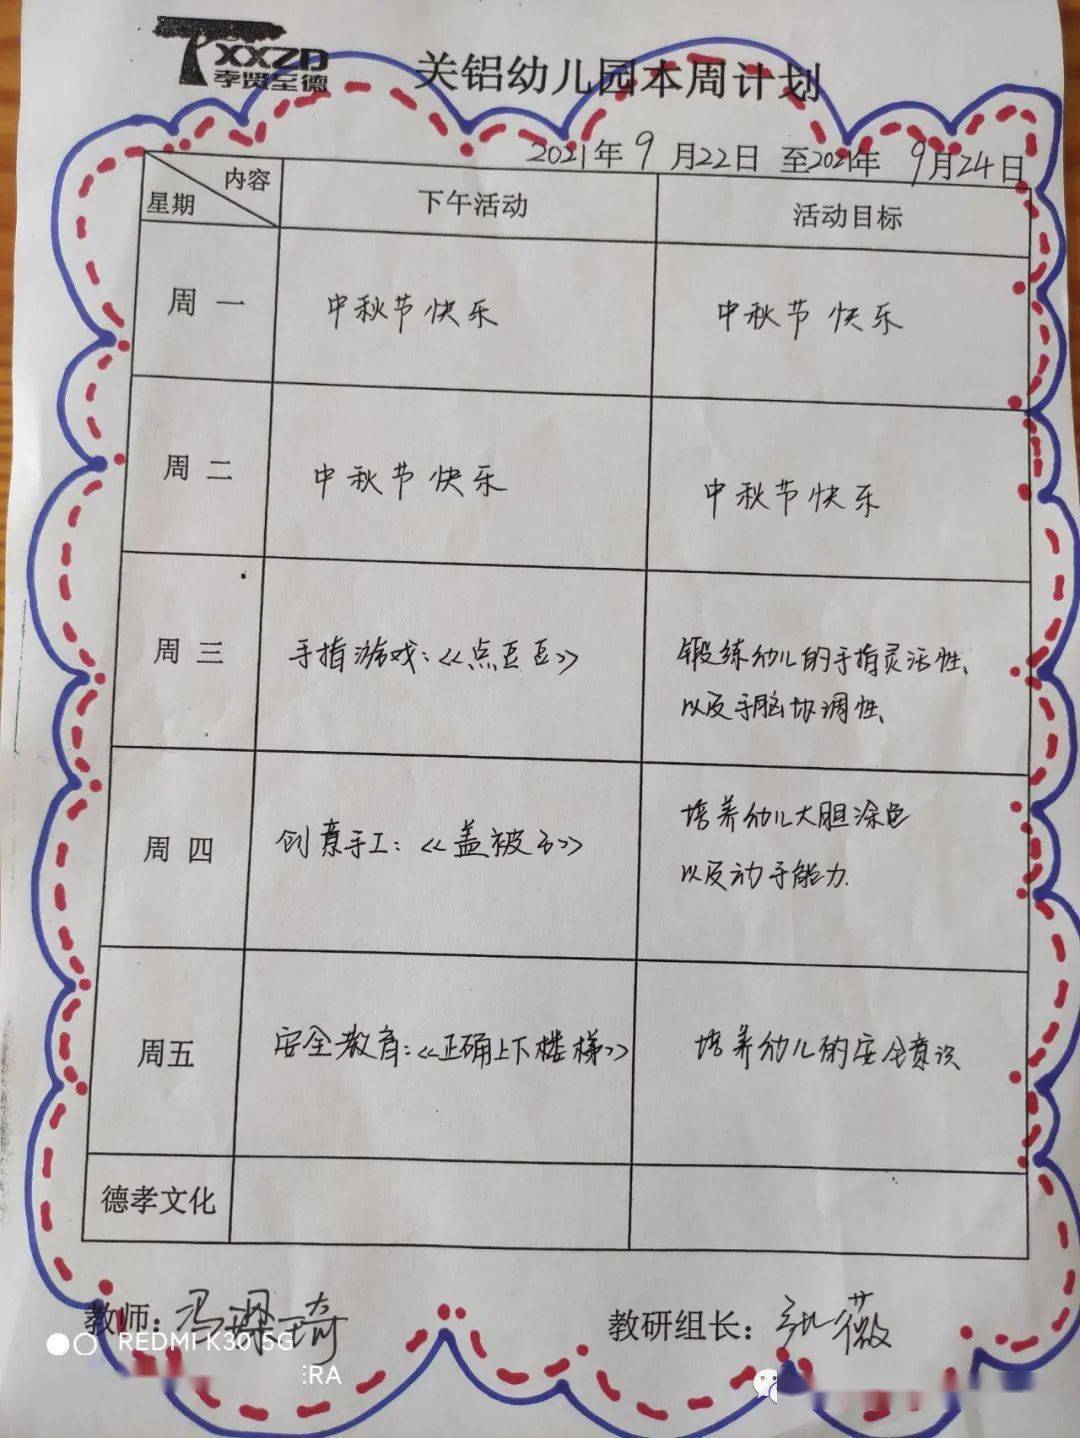 TXXZD
孝贤至德
关铝幼儿园本周计划
2021年 9月22日 至2021年 9月24日
内容
星期
下午活动
活动目标
周一
中秋节快乐
中秋节快乐
周二
中秋节快乐
中秋节快乐
周三
手指游戏:《点豆豆》
锻练幼儿的手指灵活性、
以及手脑协调性、
周四
创意手工:《盖被子》
培养幼儿大胆涂色
以及动手能力.
周五
安全教育:《正确上下楼梯》
培养幼儿的安全意识
德孝文化
教师:冯琛琦
教研组长:
薇
REDMI K30 5G
ERA